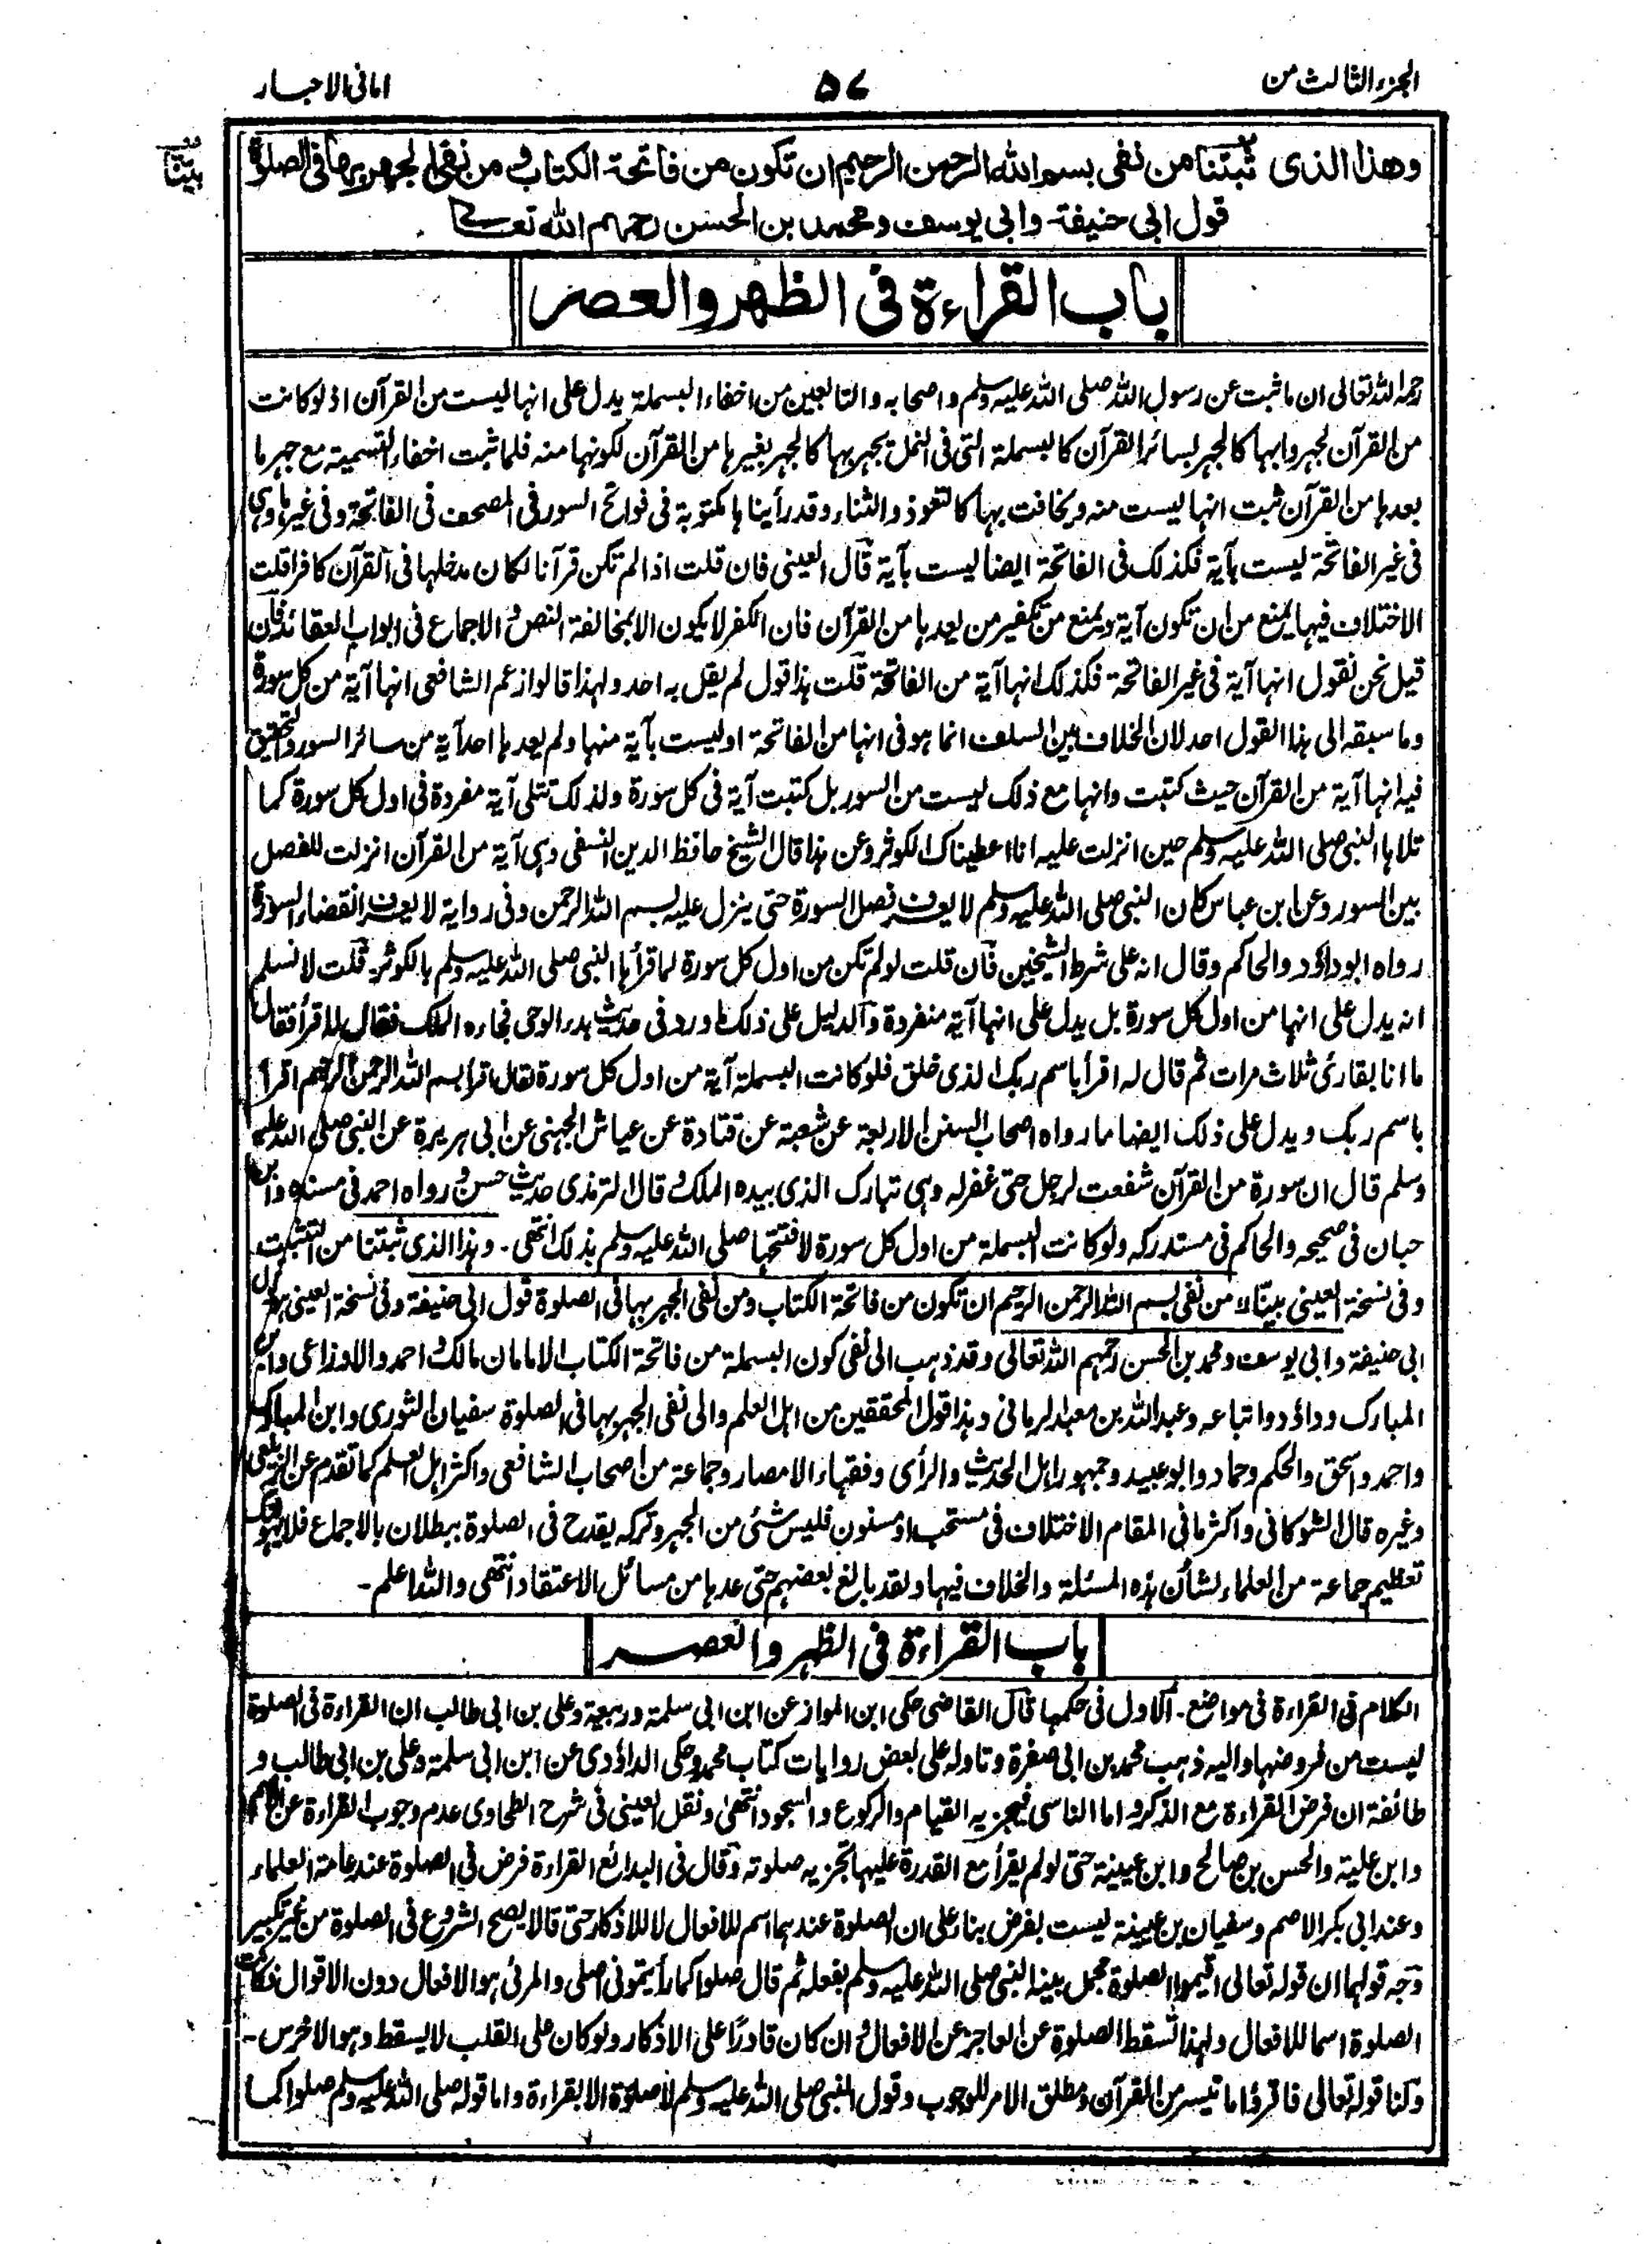 الجزء الثالث من
۵۷
امانی الاحبار
وهذا الذی ثبتنا من نفی بسم الله الرحمن الرحیم ان تکون من فاتحة الکتاب و من نفی الجهر بها فی الصلوة
بیّنّا
قول ابی حنیفة وابی یوسف ومحمد بن الحسن رحمهم الله تعالیٰ
باب القراءة فی الظهر والعصر
رحمه الله تعالی ان ما ثبت عن رسول الله صلی الله علیه وسلم واصحابه والتابعین من اخفاء البسملة یدل علی انها لیست من القرآن اذ لو کانت
من القرآن لجهروا بها کالجهر بسائر القرآن کالبسملة التی فی النمل یجهر بها کالجهر بغیرها من القرآن لکونها منه فلما ثبت اخفاء التسمیة مع جهر ما
بعدها من القرآن ثبت انها لیست منه ویخافت بها کالتعوذ والثناء وقد رأینا ها مکتوبة فی فواتح السور فی المصحف فی الفاتحة وفی غیرها وهی
فی غیر الفاتحة لیست بآیة فکذلک فی الفاتحة ایضا لیست بآیة قال العینی فان قلت اذا لم تکن قرآنا لکان مدخلها فی القرآن کافرا قلت
الاختلاف فیها یمنع من ان تکون آیة ویمنع من تکفیر من یعدها من القرآن فان الکفر لا یکون الا بمخالفة النص و الاجماع فی ابواب العقائد فان
قیل نحن نقول انها آیة فی غیر الفاتحة فکذلک انها آیة من الفاتحة قلت هذا قول لم یقل به احد ولهذا قالوا زعم الشافعی انها آیة من کل سورة
وما سبقه الی هذا القول احد لان الخلاف بین السلف انما هو فی انها من الفاتحة او لیست بآیة منها ولم یعدها احد آیة من سائر السور والتحقیق
فیه انها آیة من القرآن حیث کتبت وانها مع ذلک لیست من السور بل کتبت آیة فی کل سورة ولذلک تتلی آیة مفردة فی اول کل سورة کما
تلاها النبی صلی الله علیه وسلم حین انزلت علیه انا اعطیناک الکوثر وعن هذا قال الشیخ حافظ الدین النسفی وهی آیة من القرآن انزلت للفصل
بین السور وعن ابن عباس کان النبی صلی الله علیه وسلم لا یعرف فصل السورة حتی ینزل علیه بسم الله الرحمن وفی روایة لا یعرف انقضاء السورة
رواه ابوداؤد والحاکم وقال انه علی شرط الشیخین فان قلت لو لم تکن من اول کل سورة لما قرأها النبی صلی الله علیه وسلم بالکوثر قلت لا نسلم
انه یدل علی انها من اول کل سورة بل یدل علی انها آیة منفردة والدلیل علی ذلک ما ورد فی حدیث بدء الوحی فجاءه الملک فقال له اقرأ فقال
ما انا بقارئ ثلاث مرات ثم قال له اقرأ باسم ربک الذی خلق فلو کانت البسملة آیة من اول کل سورة لقال اقرأ بسم الله الرحمن الرحیم اقرأ
باسم ربک ویدل علی ذلک ایضا ما رواه اصحاب السنن الاربعة عن شعبة عن قتادة عن عیاش الجهنی عن ابی هریرة عن النبی صلی الله علیه
وسلم قال ان سورة من القرآن شفعت لرجل حتی غفر له وهی تبارک الذی بیده الملک و قال الترمذی حدیث حسن و رواه احمد فی مسنده وابن
حبان فی صحیحه والحاکم فی مستدرکه ولو کانت البسملة من اول کل سورة لافتتحها صلی الله علیه وسلم بذلک انتهی ۔ وهذا الذی ثبتنا من التثبت
وفی نسخة العینی بیّنّا من نفی بسم الله الرحمن الرحیم ان تکون من فاتحة الکتاب ومن نفی الجهر بها فی الصلوة قول ابی حنیفة وفی نسخة العینی هو قول
ابی حنیفة وابی یوسف ومحمد بن الحسن رحمهم الله تعالی وقد ذهب الی نفی کون البسملة من فاتحة الکتاب الامامان مالک و احمد والاوزاعی وابن
المبارک وداؤد واتباعه وعبدالله بن معبد الرمانی وهذا قول المحققین من اهل العلم والی نفی الجهر بها فی الصلوة سفیان الثوری وابن المبارک
واحمد واسحق والحکم وحماد وابوعبید وجمهور اهل الحدیث والرأی وفقهاء الامصار وجماعة من اصحاب الشافعی واکثر اهل العلم کما تقدم عن الزیلعی
وغیره قال الشوکانی واکثر ما فی المقام الاختلاف فی مستحب او مسنون فلیس شئ من الجهر وترکه یقدح فی الصلوة ببطلان بالاجماع فلا یهولنک
تعظیم جماعة من العلماء لشأن هذه المسئلة والخلاف فیها ولقد بالغ بعضهم حتی عدها من مسائل الاعتقاد انتهی والله اعلم ۔
باب القراءة فی الظهر والعصر
الکلام فی القراءة فی مواضع ۔ الاول فی حکمها قال القاضی حکی ابن المواز عن ابن ابی سلمة وربیعة وعلی بن ابی طالب ان القراءة فی الصلوة
لیست من فروضها والیه ذهب محمد بن ابی صفرة وتاوله علی بعض روایات کتاب محمد وحکی الداؤدی عن ابن ابی سلمة وعلی بن ابی طالب و
طائفة ان فرض القراءة مع الذکر و اما الناسی فیجزیه القیام والرکوع والسجود انتهیٰ ونقل العینی فی شرح الطحاوی عدم وجوب القراءة عن الاصم
وابن علیة والحسن بن صالح وابن عیینة حتی لو لم یقرأ مع القدرة علیها تجزیه صلوته وقال فی البدائع القراءة فرض فی الصلوة عند عامة العلماء
وعند ابی بکر الاصم وسفیان بن عیینة لیست بفرض بناء علی ان الصلوة عندهما اسم للافعال لا للاذکار حتی قالا یصح الشروع فی الصلوة من غیر تکبیر
وجه قولهما ان قوله تعالی اقیموا الصلوة مجمل بینه النبی صلی الله علیه وسلم بفعله ثم قال صلوا کما رأیتمونی اصلی والمرئی هو الافعال دون الاقوال فکانت
الصلوة اسما للافعال ولهذا تسقط الصلوة عن العاجز عن الافعال و ان کان قادرًا علی الاذکار ولو کان علی القلب لا یسقط وهو الاخرس ۔
ولنا قوله تعالی فاقرؤا ما تیسر من القرآن ومطلق الامر للوجوب وقول النبی صلی الله علیه وسلم لا صلوة الا بقراءة واما قوله صلی الله علیه وسلم صلوا کما